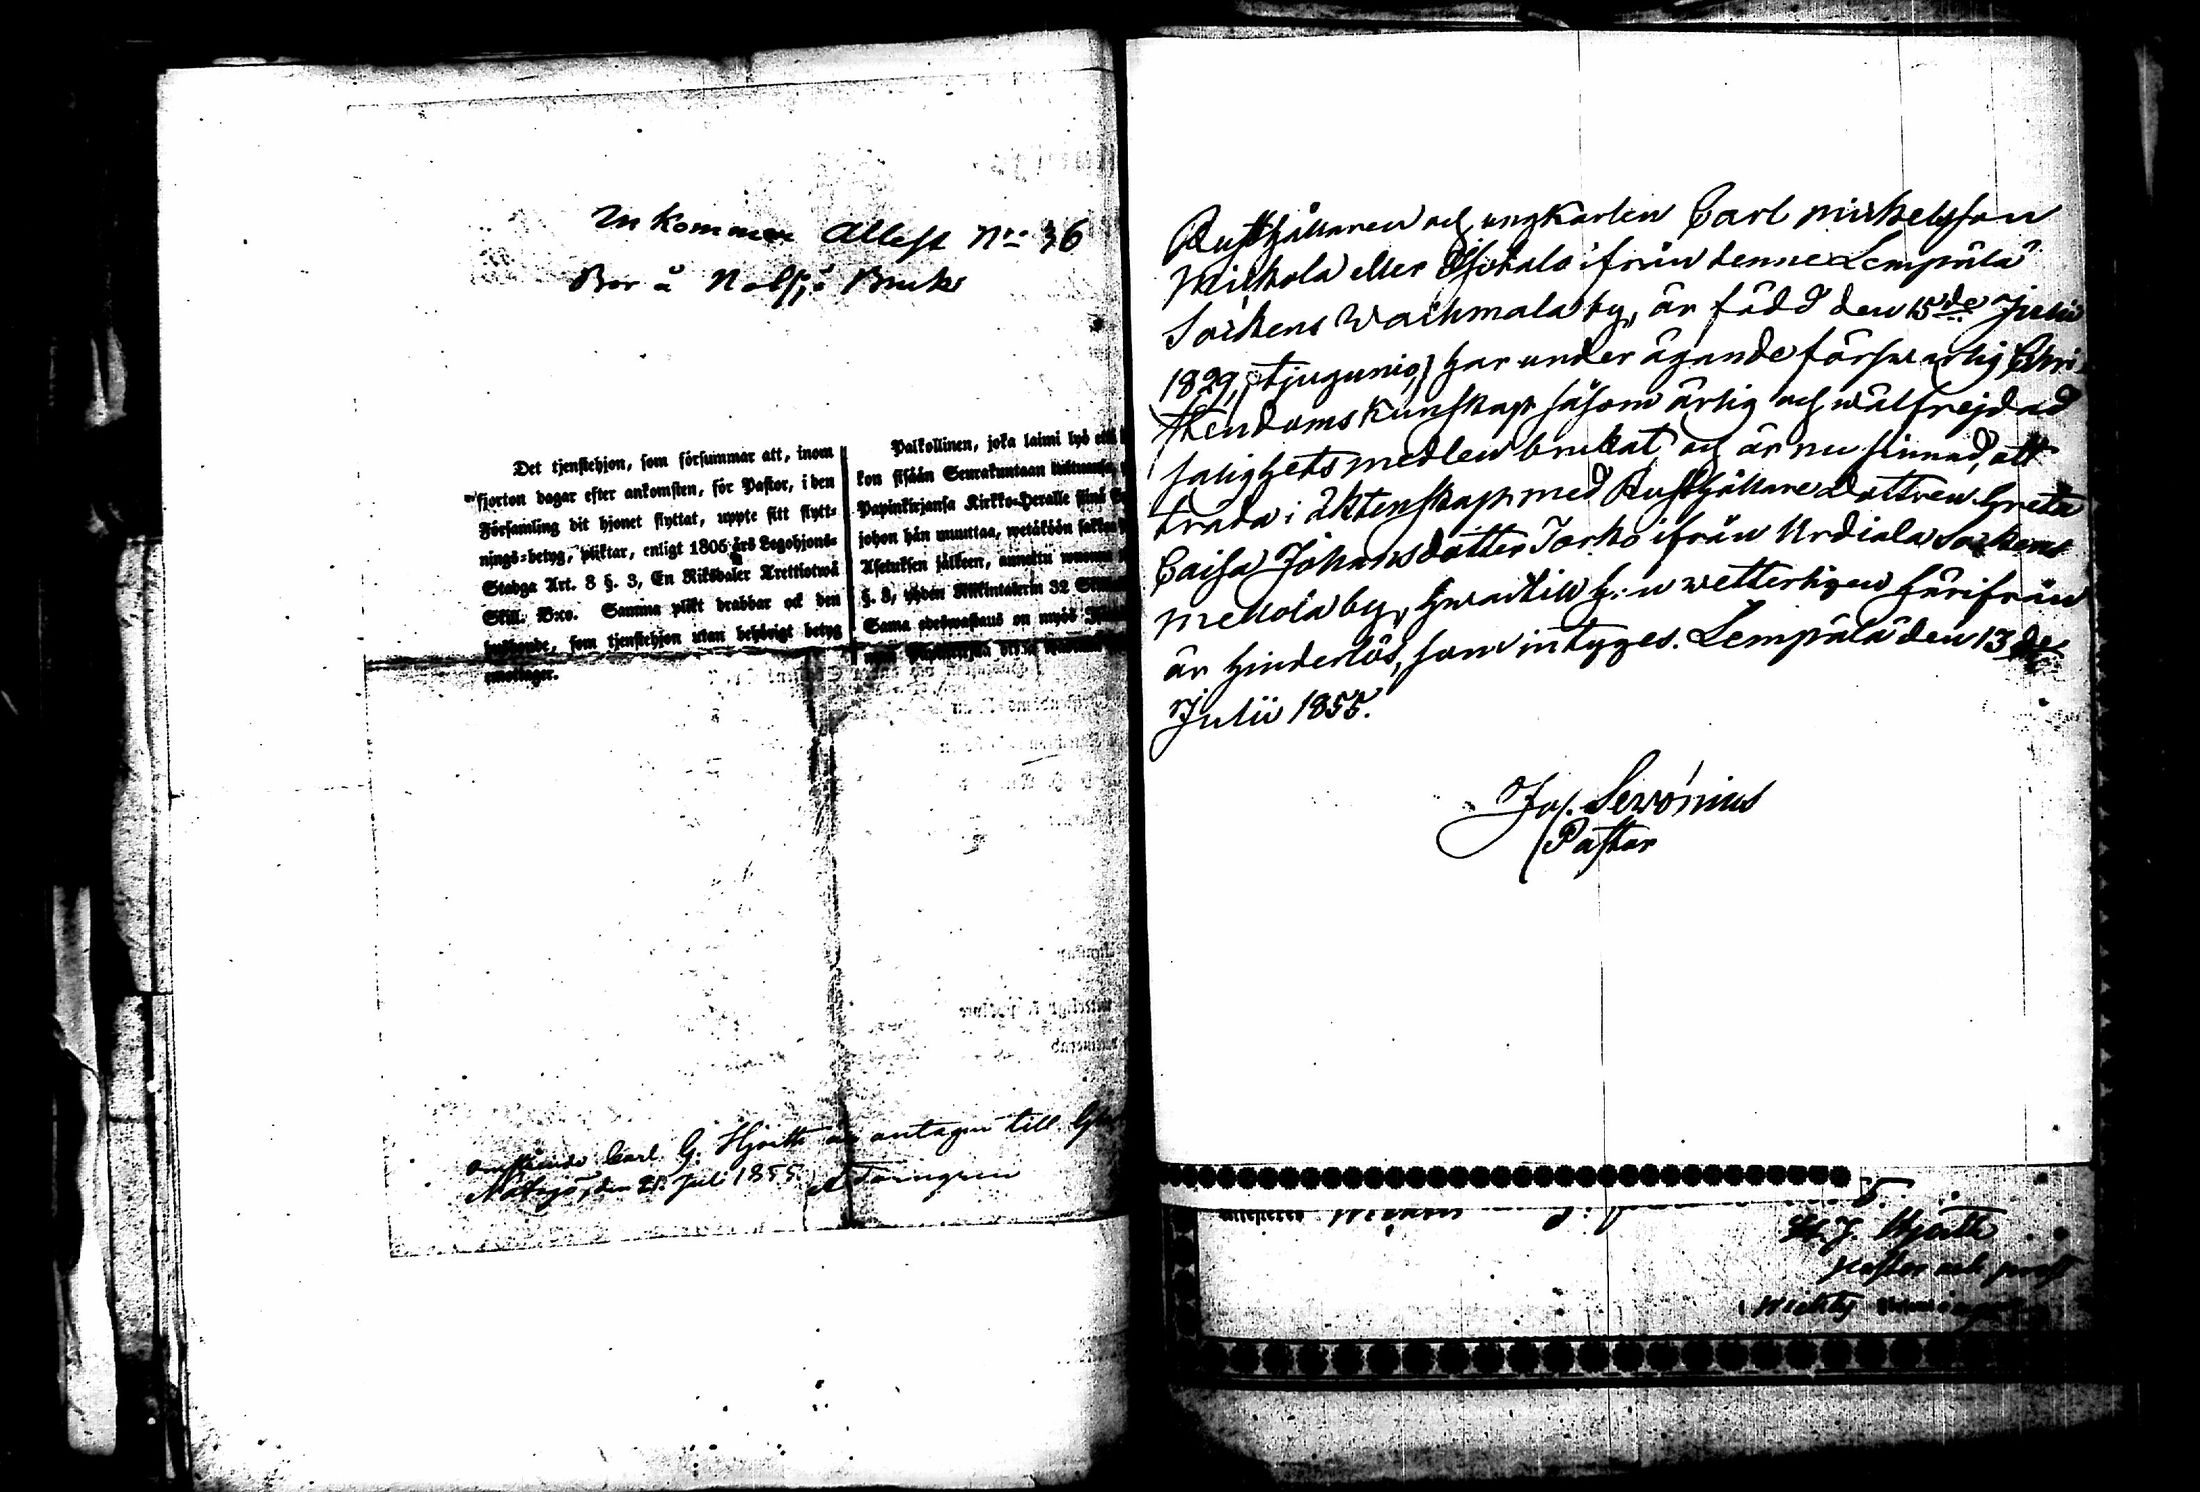 Inkommen Attest No 36
Bor å Notsjö Bruk
Det tjenstehjon, som försummar att, inom
fjorton dagar efter ankomsten, för Pastor, i den
Församling dit hjonet flyttat, uppte sitt flytt-
nings-betyg, pliktar, enligt 1805 års Legohjons-
Stadga Art. 8 §. 3, En Riksdaler Trettiotwå
Skill. B:co. Samma plikt drabbar ock den
husbonde, som tjenstehjon utan behörigt betyg
emottager.
Palkollinen, joka laimi lyö
kon sisään Seurakuntaan
Papinkirjansa Kirkko-Herralle siinä
johon hän muuttaa, wetäköön sakkoa
Asetuksen jälkeen, annettu wuonna
§. 3, yhden Riikintalerin 32
Sama edeswastaus on myös
Omstående Carl G. Hjorth är antagen till
Notsjö, den 21 Juli 1855. A Törngren
Rusthållaren och ungkarlen Carl Mickelsson
Mickola eller ifrån denne Lempälä
Sockens Waihmala by, är född den 15de Julii
1829, (tjugunio,) har under ägande förswarlig Chri-
stendoms kunskap såsom ärlig och wälfrejdad
salighets medlen brukat och är nu sinnad, att
träda i äktenskap med Rusthållare Dottren Greta
Caisa Johansdotter Jorko ifrån Urdiala Sockens
Mellola by, hwartill h:n wetterligen härifrån
är hinderlös, som intyges. Lempälä den 13de
Julii 1855.
Jos. Serónius
Pastor
5.
attesteras
H. J. Hjorth
Pastor och prost
Wichtis